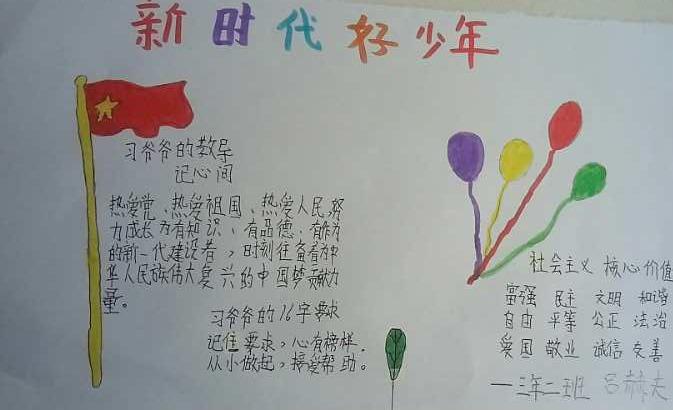 新时代好少年
习爷爷的教导
记心间
热爱党、热爱祖国、热爱人民,努
力成长为有知识、有品德、有作为
的新一代建设者,时刻准备着为中
华人民族伟大复兴的中国梦贡献力
量。
习爷爷的16字要求
记住要求,心有榜样,
从小做起,接受帮助。
社会主义 核心价值
富强 民主 文明 和谐
自由 平等 公正 法治
爱国 敬业 诚信 友善
一三年二班 吕赫